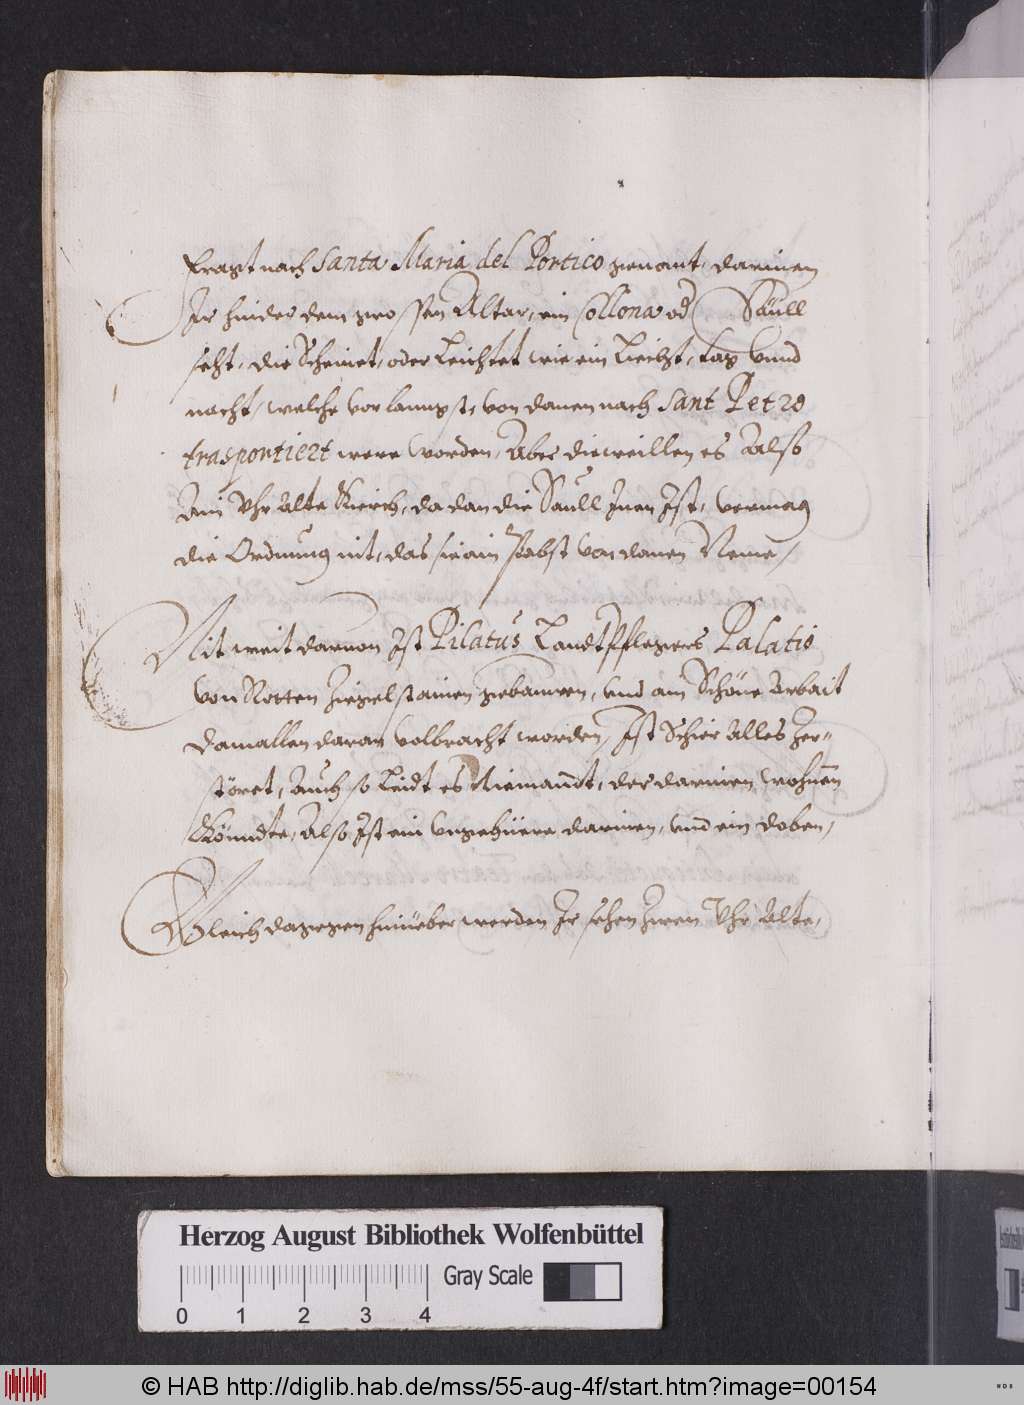 Fragt nach Santa Maria del Portico genant, darinen
Ir hinder dem grossen Altar, ein Collona od Säüll
seht, die Scheinet, oder Leichtet wie ein Liecht, tag vnnd
nacht, welche vorlanngst, von danen nach Sant Petro
trasportiert were worden, Aber dieweillen es Also
Ain Vhr Alte Kierch, da dan die Saüll Inen Ist, vermag
die Ordnung nit, das sie ain Pabst von danen Neme,
Nit weit daruon Ist Pilatus Landtpflegers Palatio
von Rotten Ziegelstainen gebauwen, vnd ain Schöne Arbait
damallen daran volbracht worden, Ist Schier Alles Zer-
störet, Auch so Leidt es Niemandt, der darinen wohnen
Könndte, Also Ist ein vngehüere darinen, vnd ein doben,
Gleich dagegen hinüeber werden Ir sehen Zwen Vhr Alte,
Herzog August Bibliothek Wolfenbüttel
Gray Scale
0 1 2 3 4
© HAB http://diglib.hab.de/mss/55-aug-4f/start.htm?image=00154